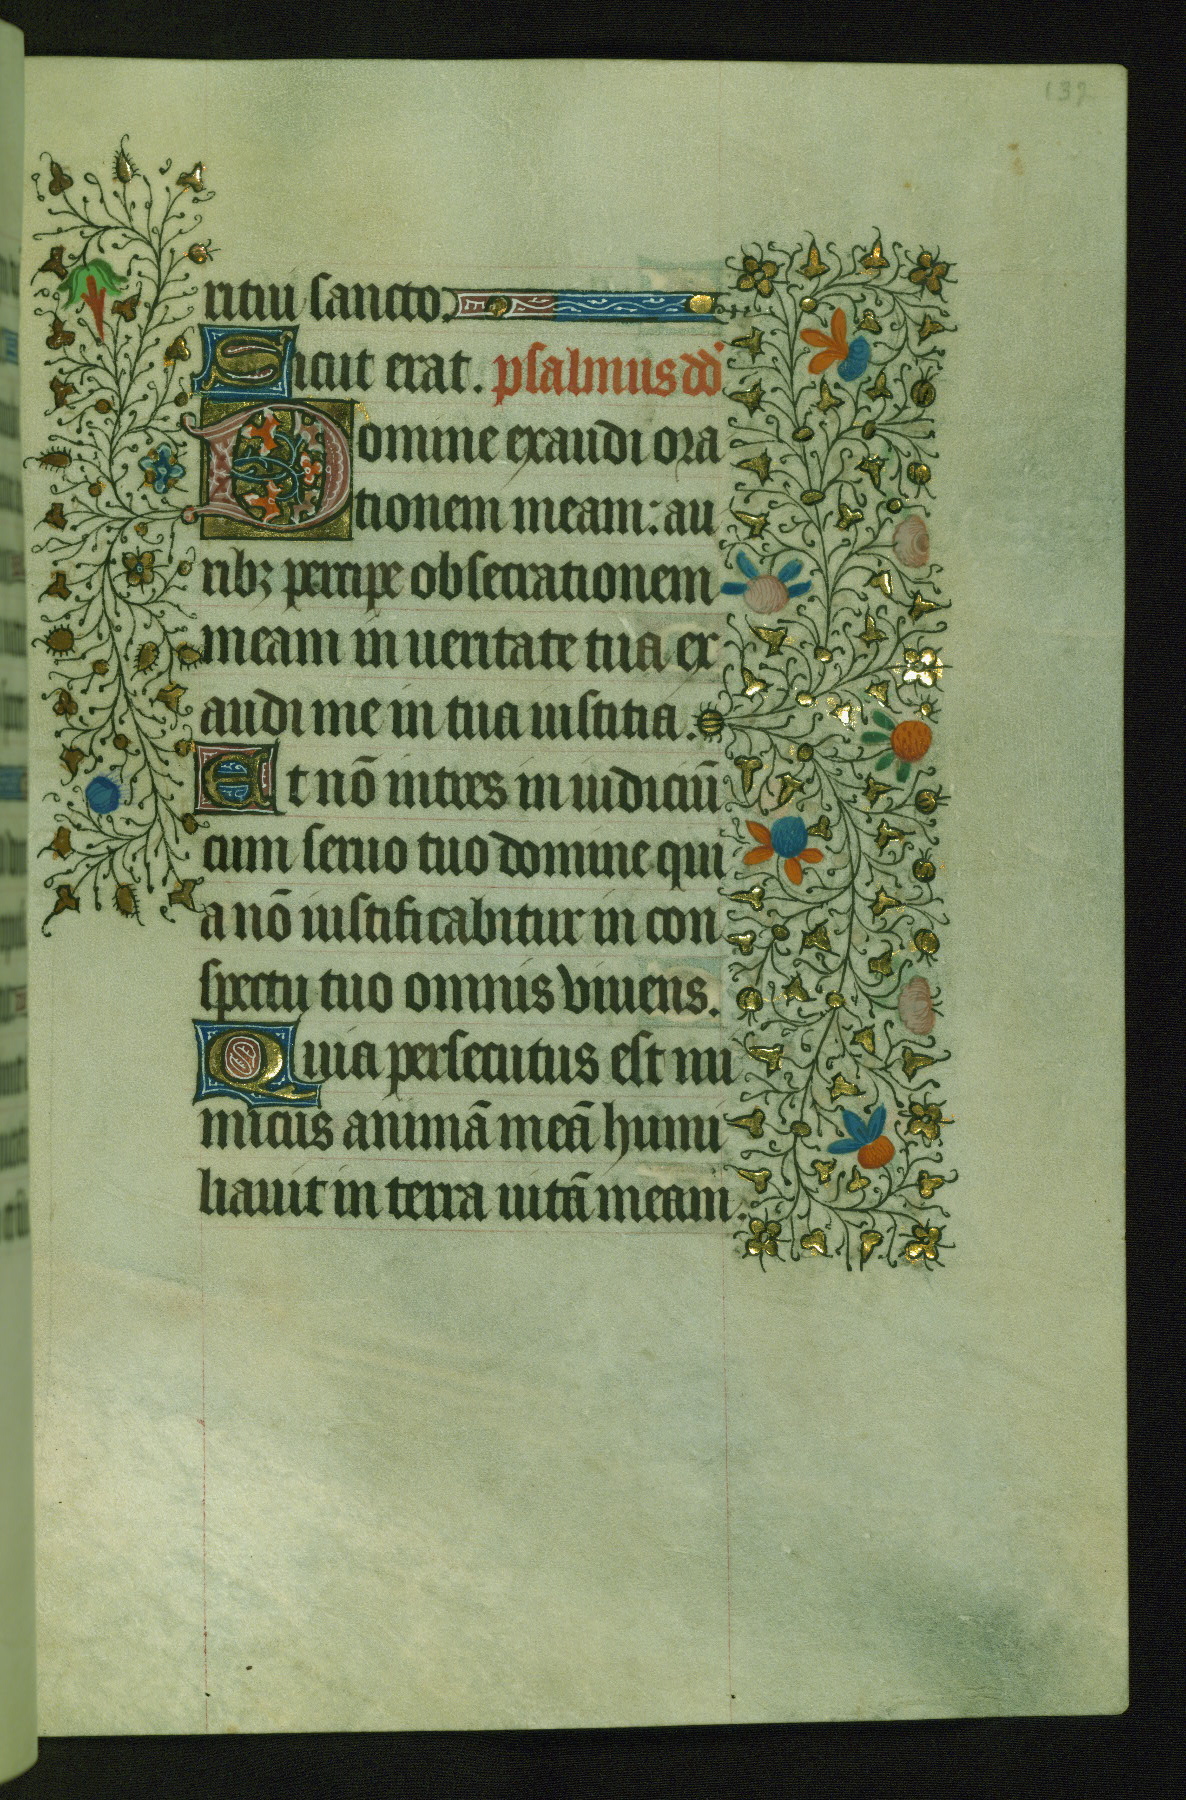 137
ritui sancto.
Sicut erat. psalmus dd
Domine exaudi ora
tionem meam: au
ribꝫ percipe obsecrationem
meam in ueritate tua ex
audi me in tua iusticia.
Et nō intres in iudiciū
cum seruo tuo domine qui
a nō iustificabitur in con
spectu tuo omnis viuens.
Quia persecutus est ini
micus animā meā humi
liauit in terra uitā meam.